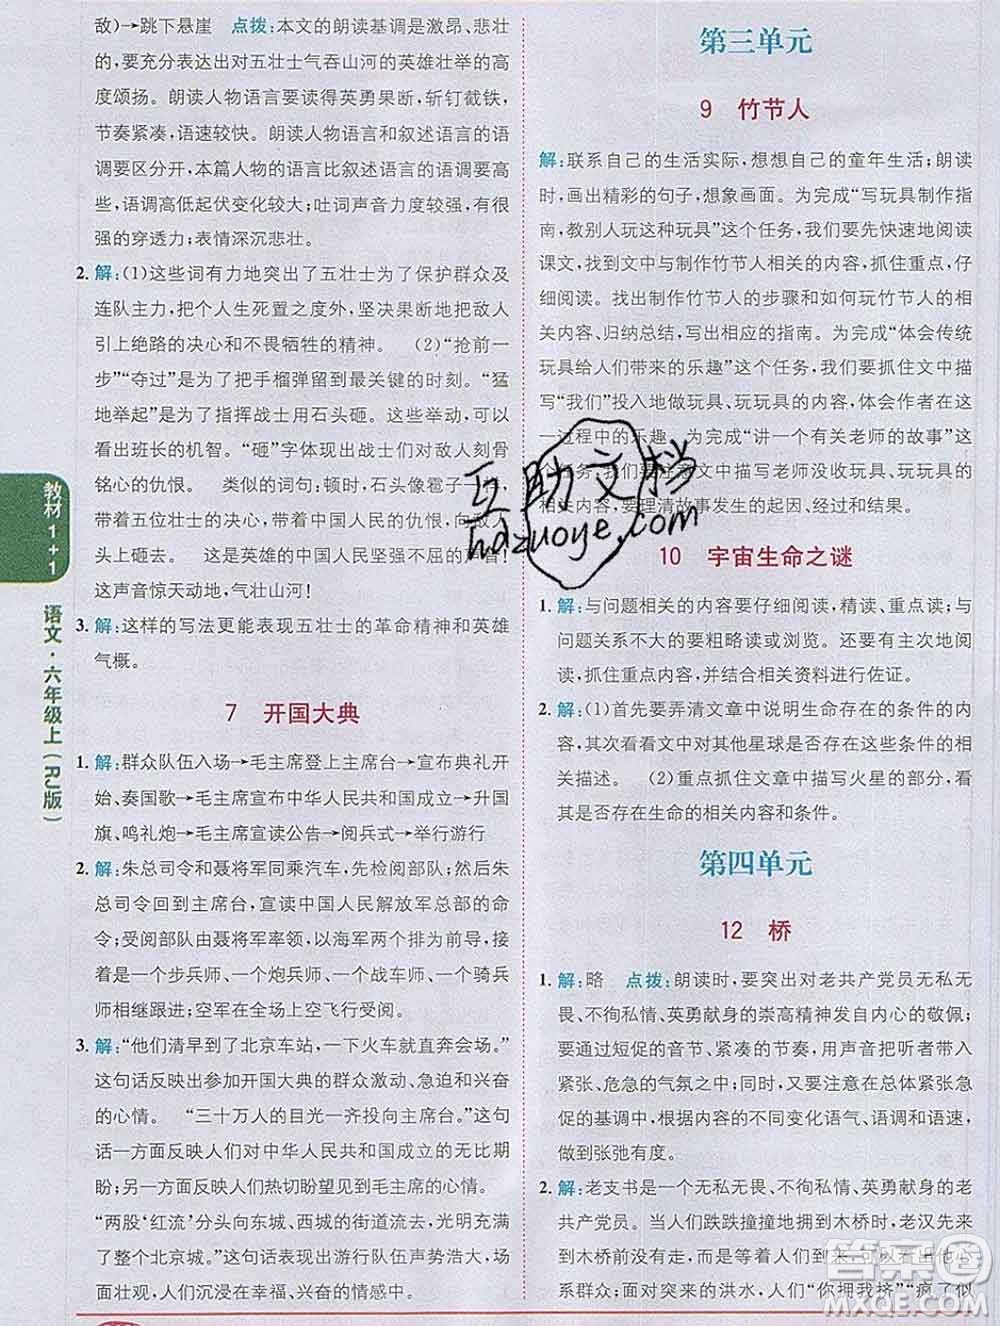 敌)→跳下悬崖　点拨:本文的朗读基调是激昂、悲壮
的,要充分表达出对五壮士气吞山河的英雄壮举的高
度颂扬。朗读人物语言要读得英勇果断,斩钉截铁,
节奏紧凑,语速较快。朗读人物语言和叙述语言的语
调要区分开,本篇人物的语言比叙述语言的语势要
强,语调高低起伏变化较大;吐词声音力度较强,有较强
的穿透力;表情深沉悲壮。
2. 解:(1)这些词有力地突出了五壮士为了保护群众及
连队主力,把个人生死置之度外,坚决果断地把敌人
引上绝路的决心和不畏牺牲的精神。　(2)“抢前一
步”“夺过”是为了把手榴弹留到最关键的时刻。“猛
地举起”是为了指挥战士用石头砸。这些举动,可以
看出班长的机智。“砸”字体现出战士们对敌人刻骨
铭心的仇恨。　类似的词句:顿时,石头像雹子一样,
带着五位壮士的决心,带着中国人民的仇恨,向敌人
头上砸去。　这是英雄的中国人民坚强不屈的声音!
这声音惊天动地,气壮山河!
3. 解:这样的写法更能表现五壮士的革命精神和英雄
气概。
7　开国大典
1. 解:群众队伍入场→毛主席登上主席台→宣布典礼开
始、奏国歌→毛主席宣布中华人民共和国成立→升国
旗、鸣礼炮→毛主席宣读公告→阅兵式→举行游行
2. 解:朱总司令和聂将军同乘汽车,先检阅部队;然后朱
总司令回到主席台,宣读中国人民解放军总部的命
令;受阅部队由聂将军率领,以海军两个排为前导,接
着是一个步兵师、一个炮兵师、一个战车师、一个骑兵
师相继跟进;空军在全场上空自东向西飞行受阅。
3. 解:“他们清早到了北京车站,一下火车就直奔会场。”
这句话反映出参加开国大典的群众激动、急迫和兴奋
的心情。　“三十万人的目光一齐投向主席台。”这句
话一方面反映人们对中华人民共和国成立的无比期
盼;另一方面反映人们热切盼望见到毛主席的心情。
“两股‘红流’分头向东城、西城的街道流去,光明充满
了整个北京城。”这句话表现出游行队伍声势浩大,场
面壮观,人们沉浸在喜悦、兴奋的情感中。
教材1+1
语文·六年级上(RJ版)
第三单元
9　竹节人
解:联系自己的生活实际,想想自己的童年生活;朗读
时,画出精彩的句子,想象画面。为完成“写玩具制作指
南,教别人玩这种玩具”这个任务,要先快速地阅读
课文,找到文中与制作竹节人相关的内容,抓住重点,仔
细阅读。找出制作竹节人的步骤和如何玩竹节人的相
关内容、归纳总结,写出相应的指南。为完成“体会传统
玩具给人们带来的乐趣”这个任务,要抓住文中描
写“我们”投入地做玩具、玩玩具的内容,体会作者在这
一过程中的乐趣。为完成“讲一个有关老师的故事”这
个任务,要注意文中描写老师没收玩具、玩玩具的
内容,要理清故事发生的起因、经过和结果。
10　宇宙生命之谜
1. 解:与问题相关的内容要仔细阅读,精读、重点读;与
问题关系不大的要粗略读或浏览。还要有主次地阅
读,抓住重点内容,并结合相关资料进行佐证。
2. 解:(1)首先要弄清文章中说明生命存在的条件的内
容,再看看文中对其他星球是否存在这些条件的相关
描述。　(2)重点抓住文章中描写火星的部分,看
是否存在生命的相关内容和条件。
第四单元
12　桥
1. 解:略　点拨:朗读时,要突出对老共产党员无私无
畏、不徇私情、英勇献身的崇高精神发自内心的敬佩;
要通过短促的音节、紧凑的节奏,用声音把听者带入
紧张、危急的气氛之中;同时,又要注意在总体紧张急
促的基调中,根据内容的不同变化语气、语调和语速,
做到张弛有度。
2. 解:老支书是一个无私无畏、不徇私情、英勇献身的老
共产党员。当人们跌跌撞撞地拥到木桥前,老汉先到
木桥前没有走,而是等着人们;他没有喊话,却能镇住
群众;面对突来的洪水,人们“你拥我挤”“疯了似
互助文档
hdzuoye.com
答案圈
MXQE.COM